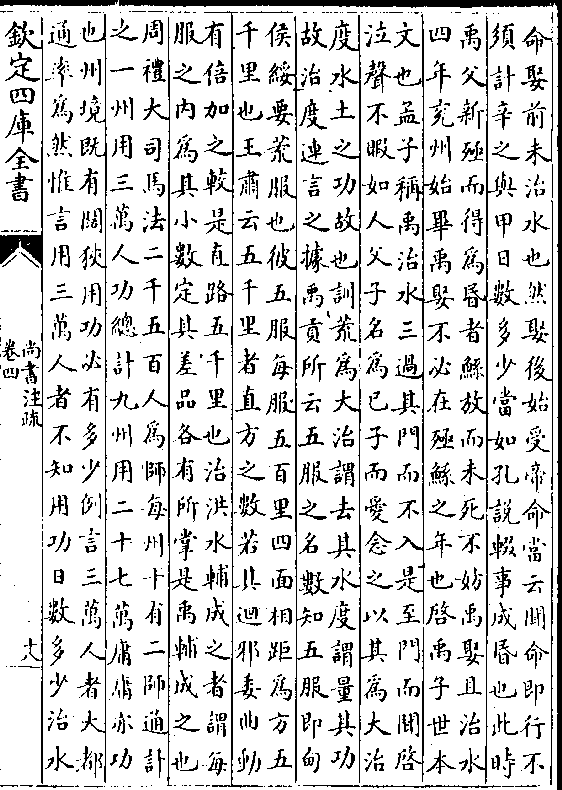 命娶前未治水也然娶後始受帝命當云聞命即行不
須計辛之與甲日數多少當如孔說輟事成昏也此時
禹父新殛而得為昏者鯀放而未死不妨禹娶且治水
四年兖州始畢禹娶不必在殛鯀之年也啓禹子世本
文也孟子稱禹治水三過其門而不入是至門而聞啓
泣聲不暇如人父子名為已子而愛念之以其為大治
度水土之功故也訓荒為大治謂去其水度謂量其功
故治度連言之據禹貢所云五服之名數知五服即甸
侯綏要荒服也彼五服每服五百里四面相距為方五
千里也王肅云五千里者直方之數若其迴邪委曲動
有倍加之較是直路五千里也治洪水輔成之者謂每
服之内為其小數定其差品各有所掌是禹輔成之也
周禮大司馬法二千五百人為師每州十有二師通計
之一州用三萬人功總計九州用二十七萬庸庸亦功
也州境既有闊狹用功必有多少例言三萬人者大都
通率為然惟言用三萬人者不知用功日數多少治水
欽定四庫全書
尚書注疏
卷四
十八